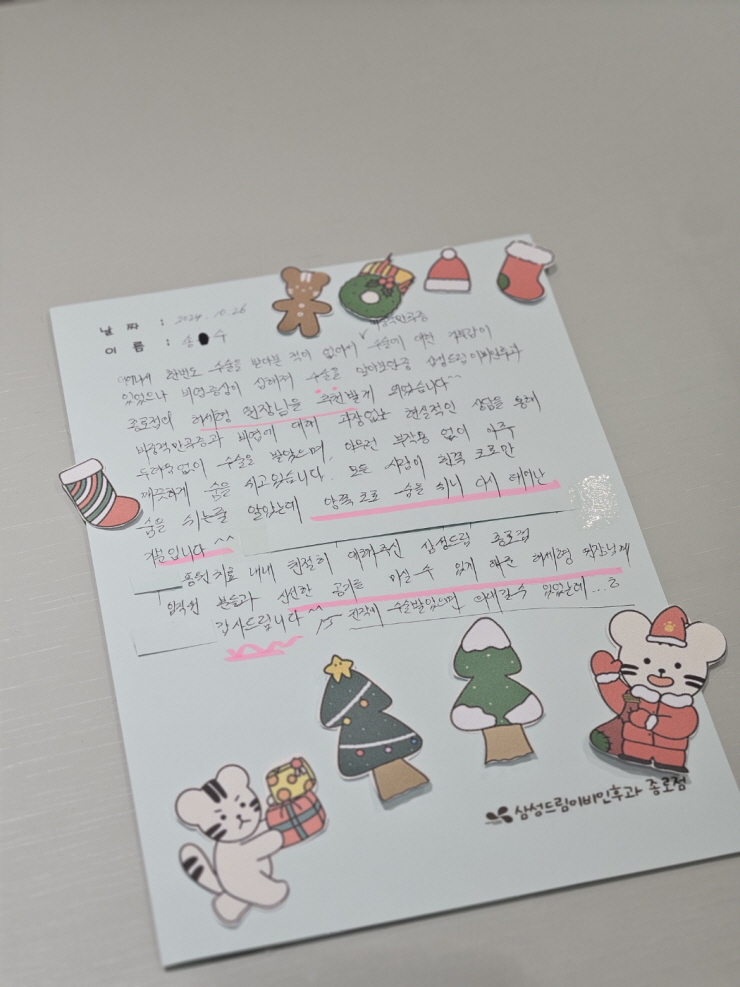 날 짜 : 2024. 10. 26
이 름 : 송 수
비중격만곡증
한번도 수술을 받아본 적이 없어서 수술에 대한 거부감이
있었으나 비염증상이 심해져 수술을 알아보던중 삼성드림이비인후과
종로점의 허세형 원장님을 추천받게 되었습니다^^
비중격만곡증과 비염에 대해 과장없는 현실적인 상담을 통해
두려움없이 수술을 받았으며, 아무런 부작용 없이 아주
깨끗하게 숨을 쉬고있습니다. 모든 사람이 한쪽 코로만
숨을 쉬는줄 알았는데 양쪽 코로 숨을 쉬니 다시 태어난
기분입니다 ^^
치료 내내 친절히 대해주신 삼성드림 종로점
임직원 분들과 신선한 공기를 마실 수 있게 해준 허세형 원장님께
감사드립니다 ^^ 진작에 수술받았으면 의대갈수 있었는데...ㅎ
삼성드림이비인후과 종로점